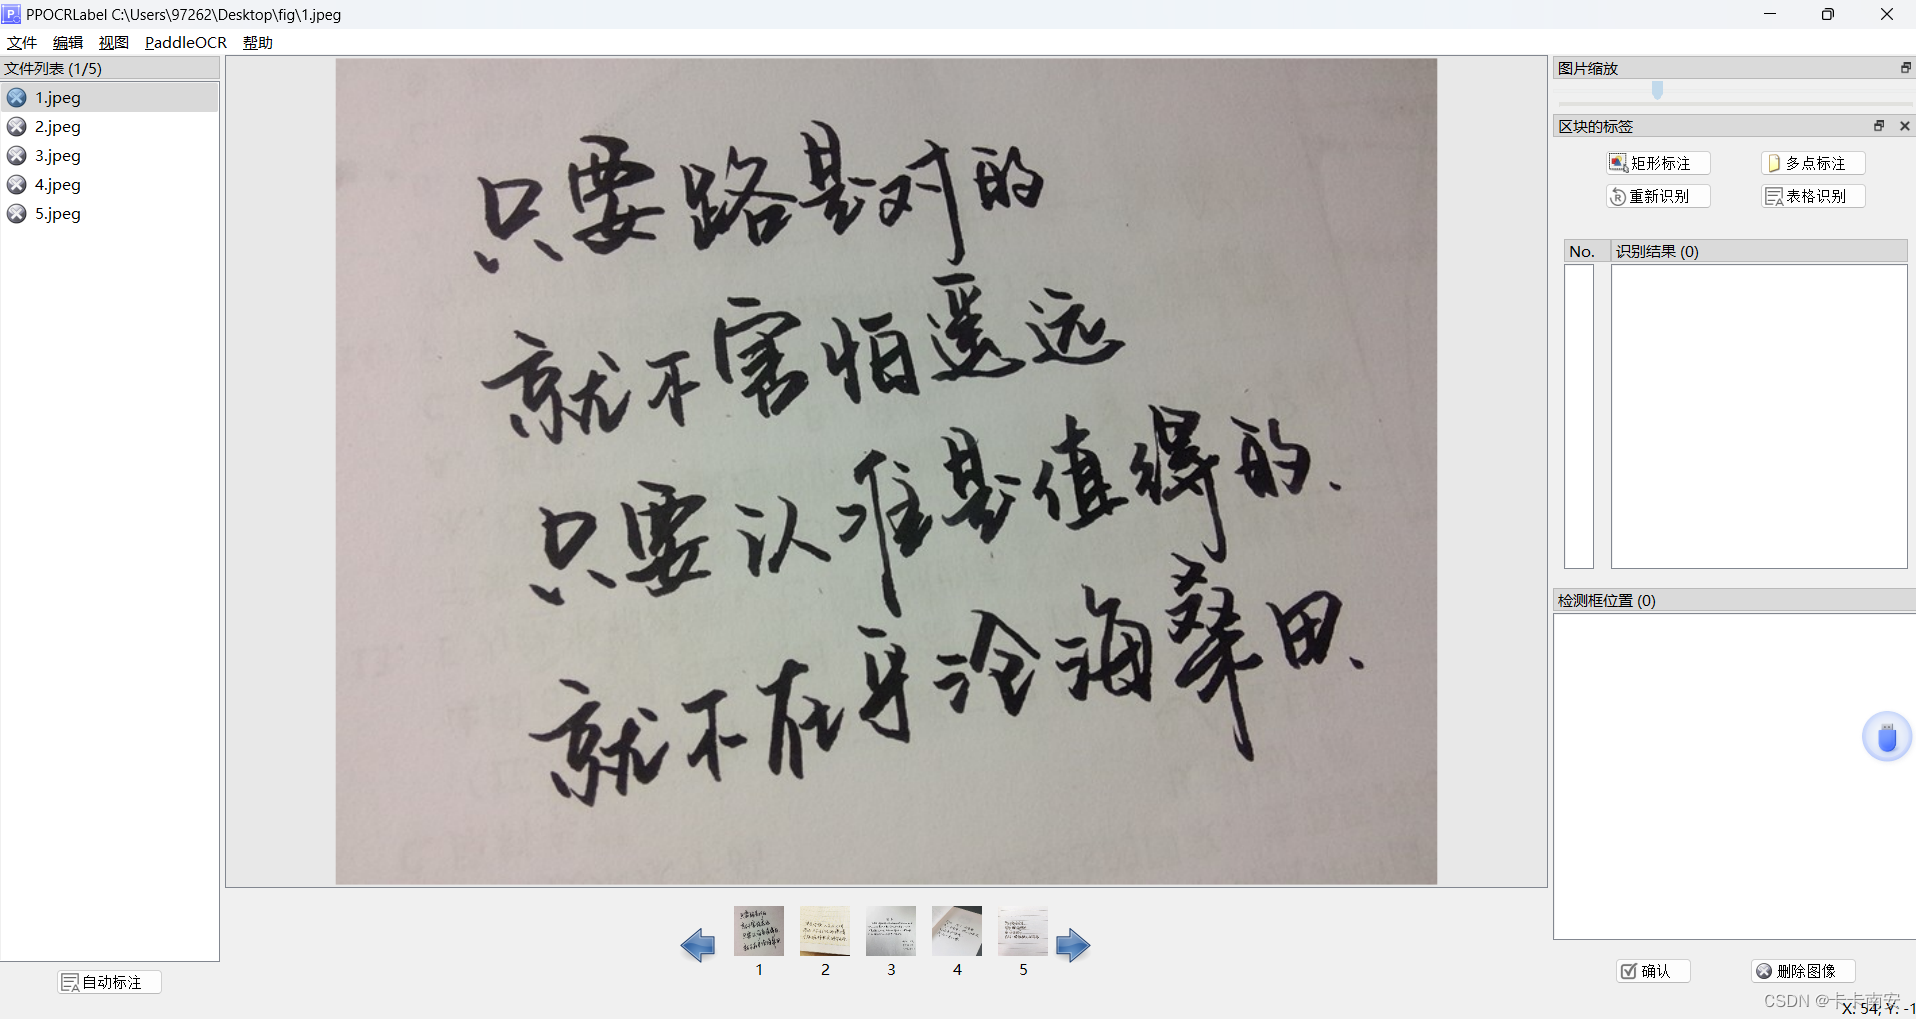 PPOCRLabel C:\Users\97262\Desktop\fig\1.jpeg
文件 编辑 视图 PaddleOCR 帮助
文件列表 (1/5)
1.jpeg
2.jpeg
3.jpeg
4.jpeg
5.jpeg
自动标注
只要路是对的
就不害怕遥远
只要认准是值得的、
就不在乎沧海桑田、
1 2 3 4 5
图片缩放
区块的标签
矩形标注 多点标注
重新识别 表格识别
No. 识别结果 (0)
检测框位置 (0)
确认 删除图像
CSDN @卡卡南安
X: 54; Y: -1